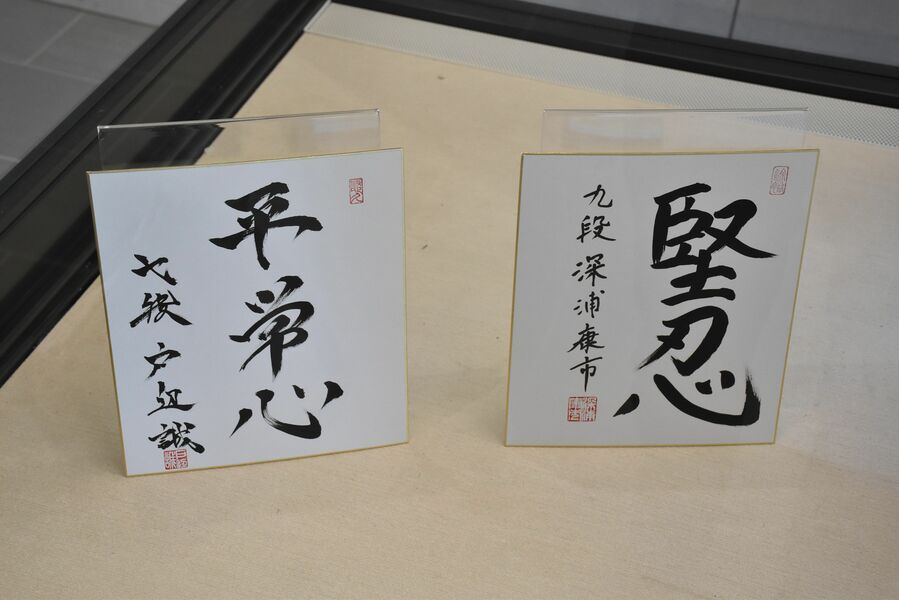 平常心
七段 戸辺誠
堅忍
九段 深浦康市